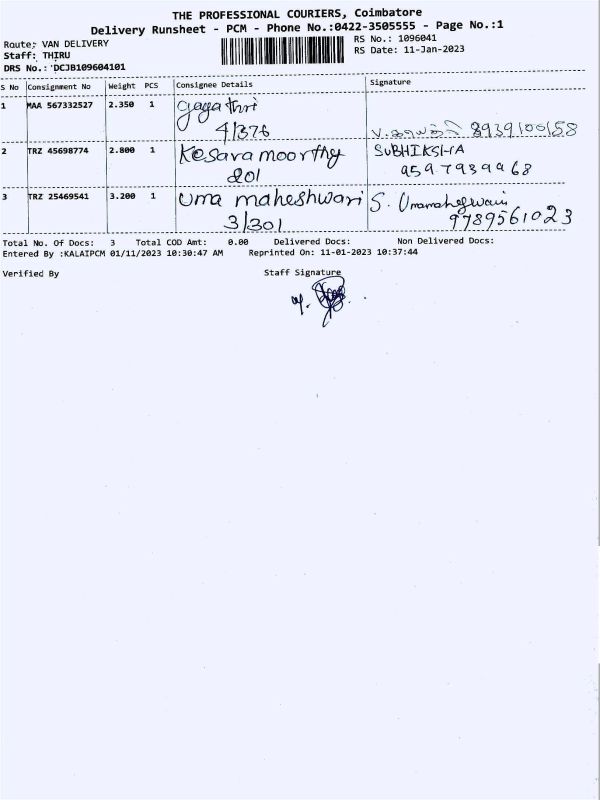 THE PROFESSIONAL COURIERS, Coimbatore
Delivery Runsheet - PCM - Phone No.:0422-3505555 - Page No.:1
Route: VAN DELIVERY
Staff: THIRU
DRS No.: DCJB109604101
RS No.: 1096041
RS Date: 11-Jan-2023
S No Consignment No Weight PCS Consignee Details Signature
1 MAA 567332527 2.350 1 Gayathri
4/376 8939100158
2 TRZ 45698774 2.800 1 Kesavamoorthy SUBHIKSHA
201 9597939968
3 TRZ 25469541 3.200 1 Uma maheshwari S. Umamaheswari
3/301 9789561023
Total No. Of Docs: 3 Total COD Amt: 0.00 Delivered Docs: Non Delivered Docs:
Entered By :KALAIPCM 01/11/2023 10:30:47 AM Reprinted On: 11-01-2023 10:37:44
Verified By Staff Signature